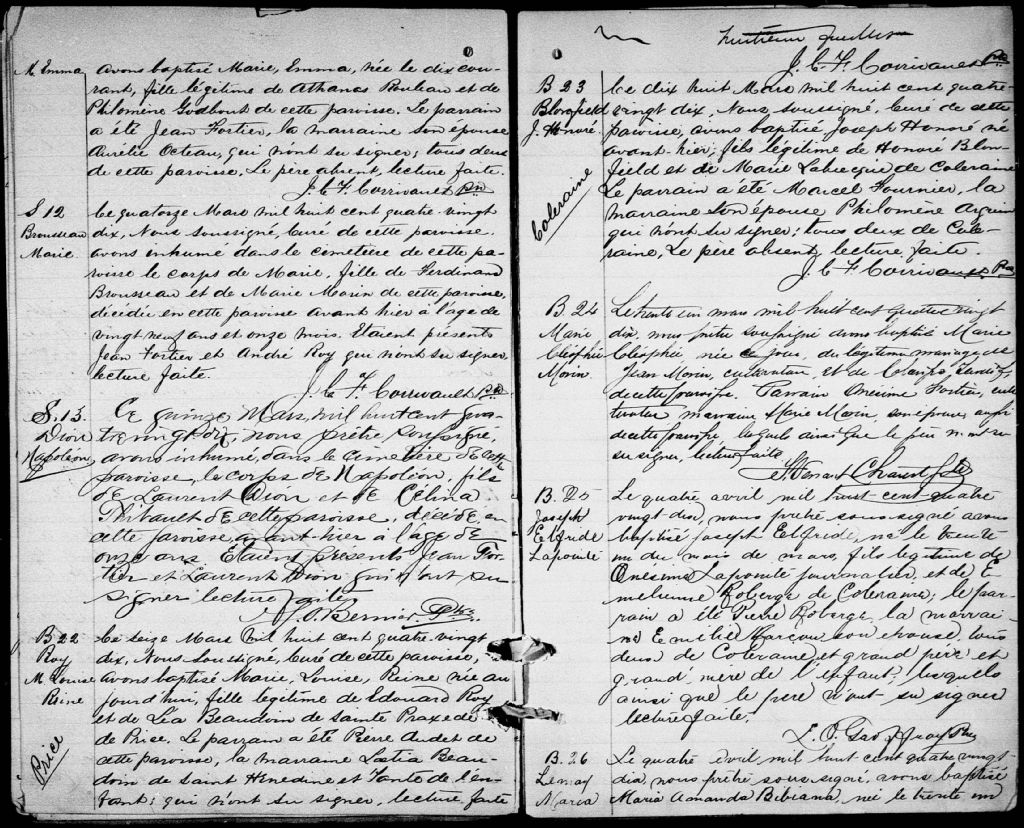 M. Emma
avons baptisé Marie, Emma, née le dix cou-
rant, fille légitime de Athanas Rouleau et de
Philomène Godbout de cette paroisse. Le parrain
a été Jean Fortier, la marraine son épouse
Aurélie Octeau, qui n'ont su signer; tous deux
de cette paroisse. Le père absent, lecture faite.
J. E. F. Corrivault Ptre
S 12
Brousseau
Marie
Le quatorze Mars mil huit cent quatre-vingt
dix, Nous soussigné, Curé de cette paroisse.
avons inhumé dans le cemetère de cette pa-
roisse le corps de Marie, fille de Ferdinand
Brousseau et de Marie Morin de cette paroisse,
décédée en cette paroisse avant hier à l'age de
vingt neuf ans et onze mois. Etaient présents
Jean Fortier et André Roy qui n'ont su signer,
lecture faite.
J. E. F. Corrivault Ptre
S. 13.
Dion
Napoléon
Ce quinze Mars, mil huit cent qua-
tre vingt dix, nous prêtre soussigné,
avons inhumé, dans le cemetère de cette
paroisse, le corps de Napoléon, fils
de Laurent Dion et de Célina
Thibault de cette paroisse, décédé, en
cette paroisse, avant-hier à l'âge de
onze ans. Etaient présents Jean For-
tier et Laurent Dion qui n'ont su
signer lecture faite
J. O. Bernier Ptre
B 22
Roy
M. Louise
Reine
Le seize Mars mil huit cent quatre-vingt
dix, Nous Soussigné, Curé de cette paroisse,
avons baptisé Marie, Louise, Reine née au
jourd'hui, fille légitime de Edouard Roy
et de Léa Beaudoin de Sainte Praxede
de Price. Le parrain a été Pierre Audet de
cette paroisse, la marraine Lætia Beau-
doin de Saint Hénédine et Tante de l'en-
fant; qui n'ont su signer, lecture faite
Price
huitième feuillet
J. E. F. Corrivault Ptre
B 23
Blomfield
J. Honoré
Coleraine
Le dix huit Mars mil huit cent quatre-
vingt dix, Nous soussigné, Curé de cette
paroisse, avons baptisé Joseph Honoré né
avant-hier, fils légitime de Honoré Blom
field et de Marie Labrecque de Coleraine
Le parrain a été Marcel Fournier, la
marraine Son épouse Philomène Arguin
qui n'ont su signer; tous deux de Cole-
raine, Le père absent, lecture faite.
J. E. F. Corrivault Ptre
B. 24
Marie
Cléophée
Morin
Le trente un mars mil huit cent quatre vingt
dix, nous prêtre soussigné avons baptisé Marie
Cléophée, née ce jour, du légitime mariage de
Jean Morin, cultivateur, et de
de cette paroisse. Parrain Onésime Fortier, cul
tivateur marraine Marie Morin, son épouse, aussi
de cette paroisse, lesquels ainsi que le père n'ont su
su signer, lecture faite
B. 25
Joseph
Elfride
Lapointe
Le quatre avril mil huit-cent quatre
vingt dix, nous prêtre sous-signé avons
baptisé Joseph Elfride, né le trente
un du mois de mars, fils légitime de
Onésime Lapointe journalier, et de E
melienne Roberge de Coleraine; le par
rain a été Pierre Roberge, la marrai
ne Emélie Garçon son épouse, tous
deux de Coleraine, et grand père et
grand, mère de l'enfant, lesquels
ainsi que le père n'ont su signer
lecture faite.
B. 26
Lemay
Maria
Le quatre Avril mil huit cent quatre vingt-
dix, nous prêtre sous signé, avons baptisé
Maria Amanda Bibiana, née le trente un